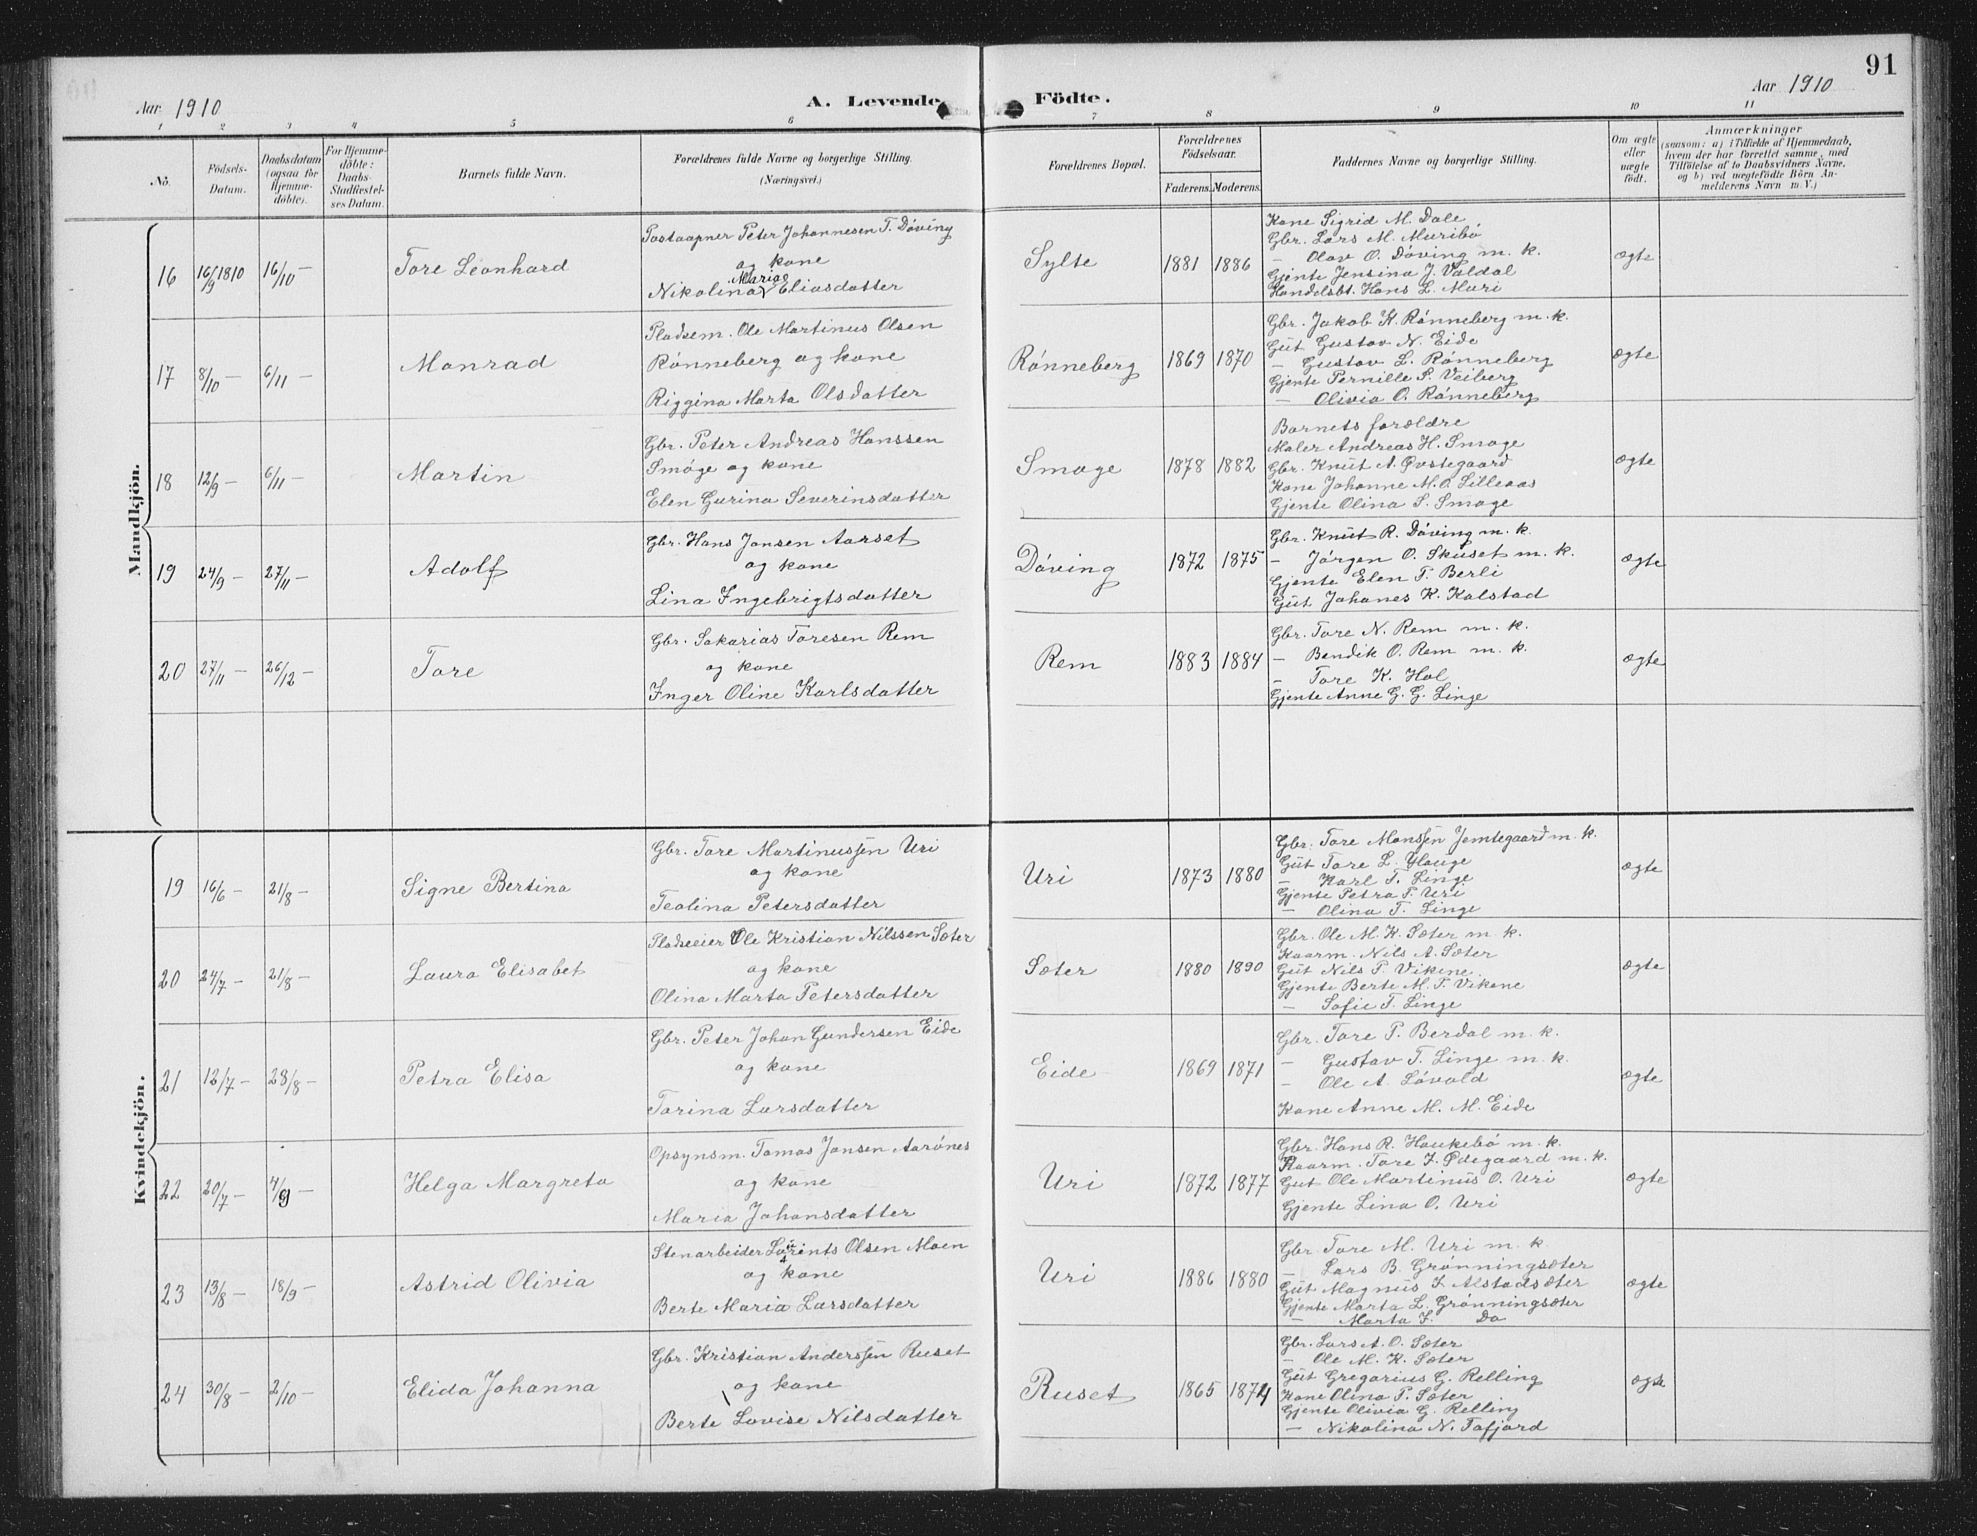 91
Aar 1910
A. Levende Födte.
Aar 1910
1 2 3 4 5 6 7 8 9 10 11
No.
Födsels-
Datum.
Daabsdatum
(ogsaa for
Hjemme-
döbte).
For Hjemme-
döbte:
Daabs-
Stadfæstel-
ses Datum.
Barnets fulde Navn.
Forældrenes fulde Navne og borgerlige Stilling.
(Næringsvei.)
Forældrenes Bopæl.
Forældrenes
Födselsaar.
Faderens. Moderens.
Faddernes Navne og borgerlige Stilling.
Om ægte
eller
uægte
født.
Anmærkninger
(saasom: a) i Tilfælde af Hjemmedaab,
hvem der har forrettet samme, med
Tilföielse af to Daabsvidners Navne,
og b) ved uægtefödte Börn An-
melderens Navn m. V.)
Mandkjön.
16 16/9 1810 16/10 — Tore Leonhard
Postaapner Peter Johannesen T. Döving
og kone
Marie
Nikolina Eliasdatter
Sylte 1881 1886
Kone Sigrid M. Dale
Gbr. Lars M. Muribö
— Olav O. Döving m. k.
Gjente Jensina J. Valdal
Handelsbt. Hans L. Muri
ægte
17 8/10 — 6/11 — Monrad
Pladsem. Ole Martinus Olsen
Rönneberg og kone
Riggina Marta Olsdatter
Rönneberg 1869 1870
Gbr. Jakob K. Rönneberg m. k.
Gut Gustav N. Eide
— Gustav L. Rönneberg
Gjente Pernille P. Veiberg
— Olivia O. Rönneberg
ægte
18 12/9 — 6/11 — Martin
Gbr. Peter Andreas Hanssen
Smöge og kone
Elen Gurina Severinsdatter
Smoge 1878 1882
Barnets forældre
Maler Andreas H. Smoge
Gbr. Knut A. Øvstegaard
Kone Johanne M. O. Lilleaas
Gjente Olina S. Smoge
ægte
19 24/9 — 27/11 — Adolf
Gbr. Hans Jansen Aarset
og kone
Lina Ingebrigtsdatter
Döving 1872 1875
Gbr. Knut R. Döving m. k.
— Jörgen O. Skuset m. k.
Gjente Elen T. Berli
Gut Johanes K. Kalstad
ægte
20 27/11 — 26/12 — Tore
Gbr. Sakarias Toresen Rem
og kone
Inger Oline Karlsdatter
Rem 1883 1884
Gbr. Tore N. Rem m. k.
— Bendik O. Rem m. k.
— Tore K. Hol
Gjente Anne G. G. Linge
ægte
Kvindekjön.
19 16/6 — 21/8 — Signe Bertina
Gbr. Tore Martinussen Uri
og kone
Teolina Petersdatter
Uri 1873 1880
Gbr. Tore Monssen Jemtegaard m. k.
Gut Tore L. Hauge
— Karl T. Linge
Gjente Petra P. Uri
— Olina T. Linge
ægte
20 24/7 — 21/8 — Laura Elisabet
Pladseeier Ole Kristian Nilssen Sæter
og kone
Olina Marta Petersdatter
Sæter 1880 1890
Gbr. Ole M. K. Sæter m. k.
Kaarm. Nils A. Sæter
Gut Nils P. Vikene
Gjente Berte M. T. Vikene
— Sofie T. Linge
ægte
21 12/7 — 28/8 — Petra Elisa
Gbr. Peter Johan Gundersen Eide
og kone
Torina Larsdatter
Eide 1869 1871
Gbr. Tore P. Berdal m. k.
— Gustav T. Linge m. k.
— Ole A. Lövold
Kone Anne M. M. Eide
ægte
22 20/7 — 4/9 — Helga Margreta
Opsynsm. Tomas Jansen Aarönes
og kone
Maria Johansdatter
Uri 1872 1877
Gbr. Hans R. Haukebö m. k.
Kaarm. Tore I. Ødegaard m. k.
Gut Ole Martinus O. Uri
Gjente Lina O. Uri
ægte
23 13/8 — 18/9 — Astrid Olivia
Stenarbeider Laurents Olsen Moen
og kone
Berte Maria Larsdatter
Uri 1886 1880
Gbr. Tore M. Uri m. k.
— Lars B. Grönningsæter
Gut Magnus I. Alstadsæter
Gjente Marta L. Grönningsæter
— Marta I. Do
ægte
24 30/8 — 2/10 — Elida Johanna
Gbr. Kristian Anderssen Ruset
og kone
Berte Lovise Nilsdatter
Ruset 1865 1874
Gbr. Lars A. O. Sæter
— Ole M. K. Sæter
Gut Gregorius G. Relling
Kone Olina P. Sæter
Gjente Olivia G. Relling
— Nikolina N. Tafjord
ægte